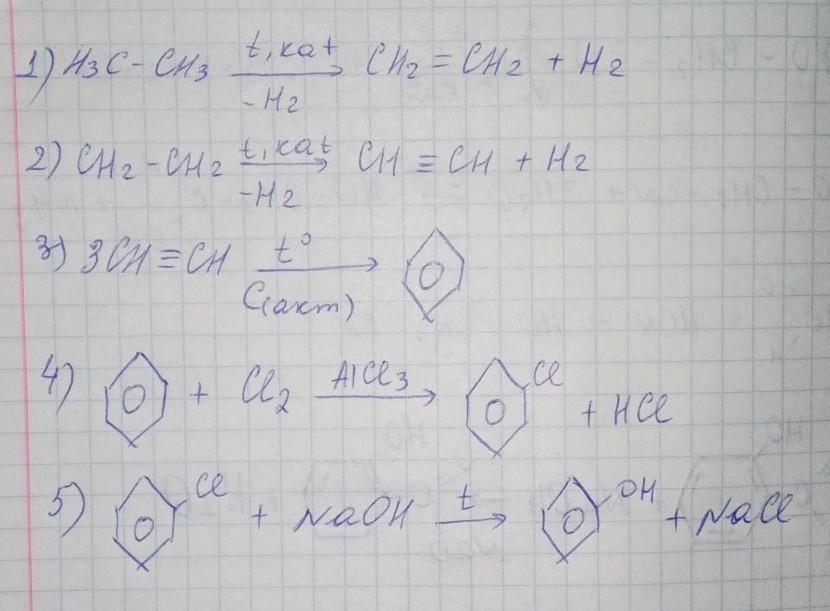 1) H3C - CH3 t, kat → - H2 CH2 = CH2 + H2
2) CH2 - CH2 t, kat → - H2 CH ≡ CH + H2
3) 3CH ≡ CH t° → C(акт)
4) + Cl2 AlCl3 → Cl + HCl
5) Cl + NaOH t → OH + NaCl